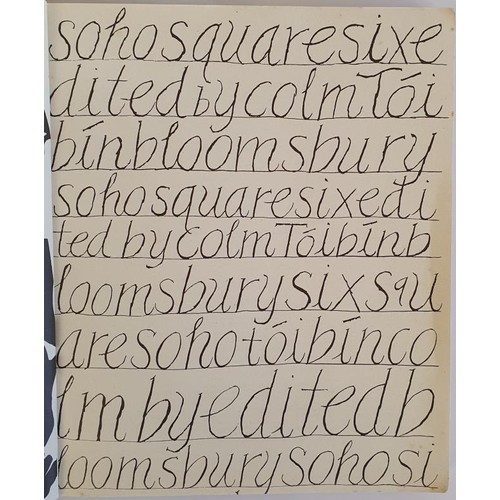 sohosquaresixe
ditedbycolmTói
bínbloomsbury
sohosquaresixedi
ted by Colm Tóibínb
loomsburysixsqu
aresohotóibínco
lm byeditedb
loomsburysohosi